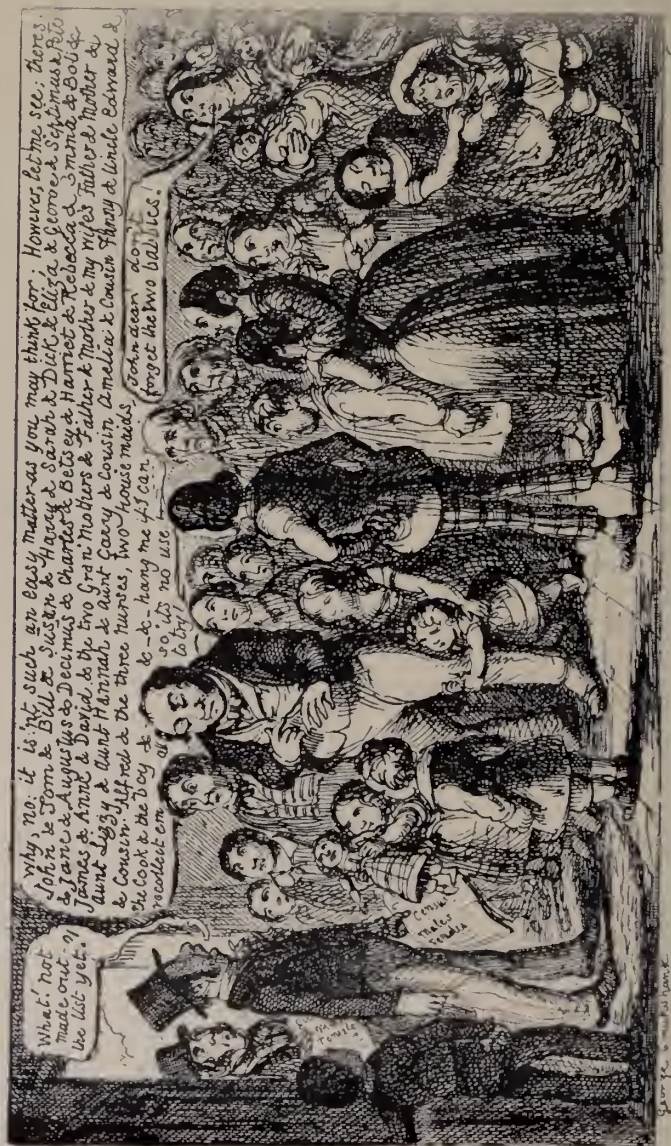 What! not
made out
the list yet?
Why, no; it is not such an easy matter as you may think for; However, let me see; there's
John & Tom & Bill & Susan & Harry & Sarah & Dick & Eliza & George & Septimus &
& Jane & Augustus & Decimus & Charles & Betsey & Harriet & Rebecca & Emma & Bob &
James & Ann & David & the two Gran'Mothers & Father & Mother & my wife's Father & Mother &
aunt Lizzy & aunt Hannah & aunt Carry & Cousin Amelia & Cousin Fanny & Uncle Edward &
& Cousin Alfred & the three nurses, two house maids
the Cook & the boy & & – & – hang me if I can
recollect em all so its no use
to try!
John dear! don't
forget the two babbies!
Census
males
Females
George Cruikshank